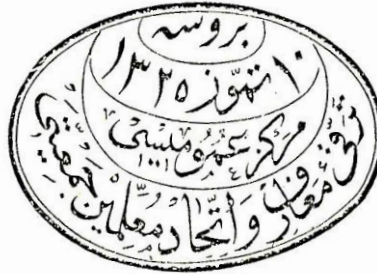 بروسه
١٠ تموز ١٣٢٥
مركز عمومیسی
ترقئ معارف و اتحاد معلمین جمعیتی